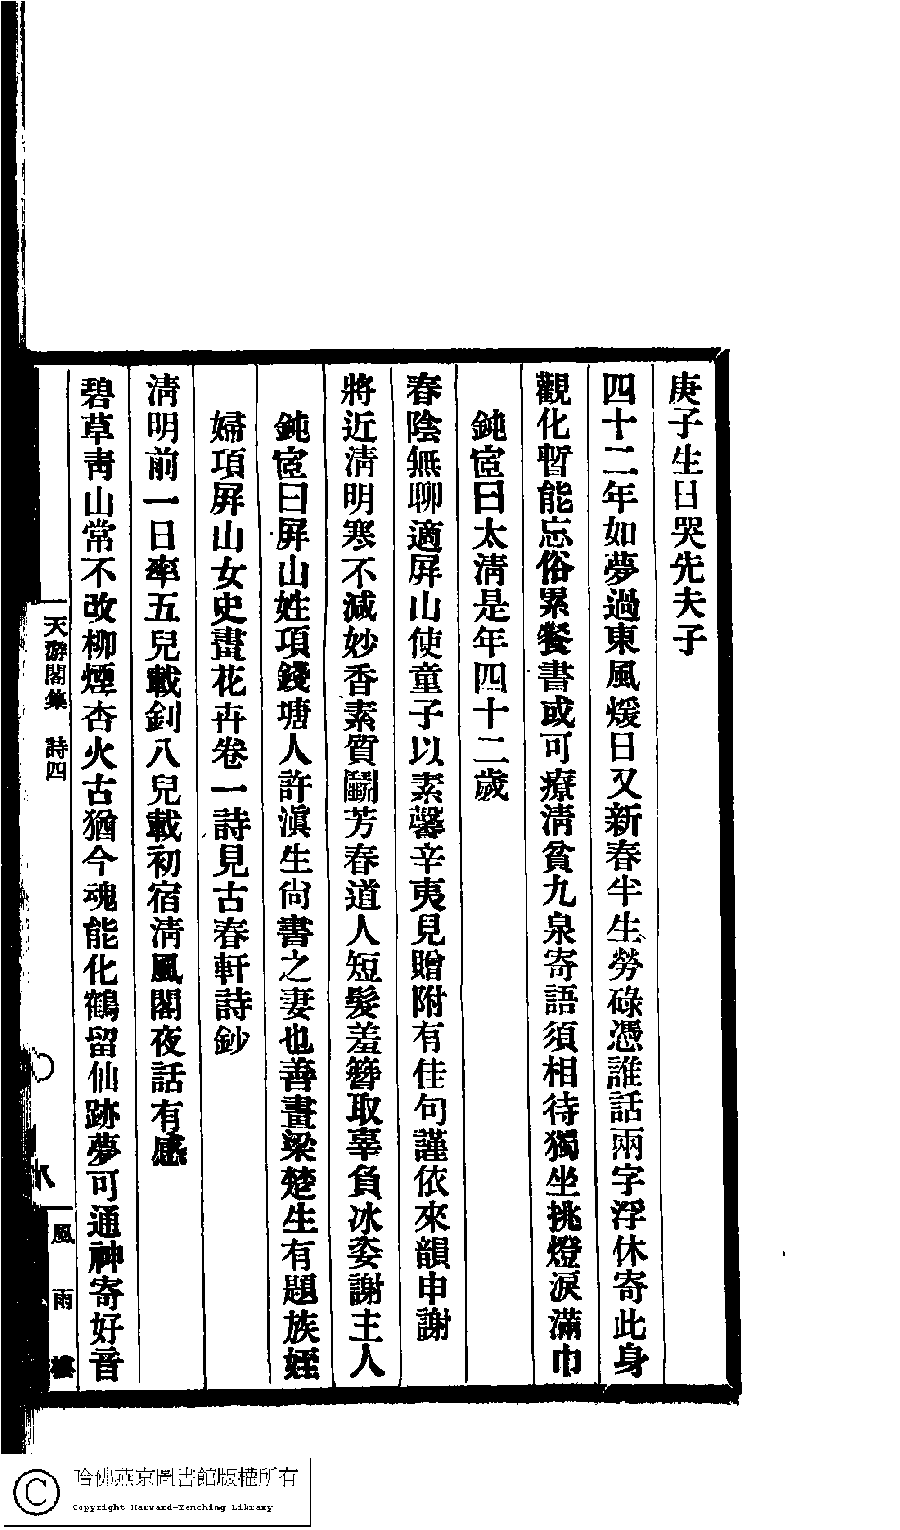 庚子生日哭先夫子
四十二年如夢過東風煖日又新春半生勞碌憑誰話兩字浮休寄此身
觀化暫能忘俗累餐書或可療淸貧九泉寄語須相待獨坐挑燈淚滿巾
鈍宧曰太淸是年四十二歲
春陰無聊適屛山使童子以素馨辛夷見贈附有佳句謹依來韻申謝
將近淸明寒不減妙香素質鬭芳春道人短髮羞簪取辜負冰姿謝主人
鈍宧曰屛山姓項錢塘人許滇生尙書之妻也善畫梁楚生有題族姪
婦項屛山女史畫花卉卷一詩見古春軒詩鈔
淸明前一日率五兒載釗八兒載初宿淸風閣夜話有感
碧草靑山常不改柳煙杏火古猶今魂能化鶴留仙跡夢可通神寄好音
天游閣集 詩四
風雨樓
哈佛燕京圖書館版權所有
Copyright Harvard-Yenching Library